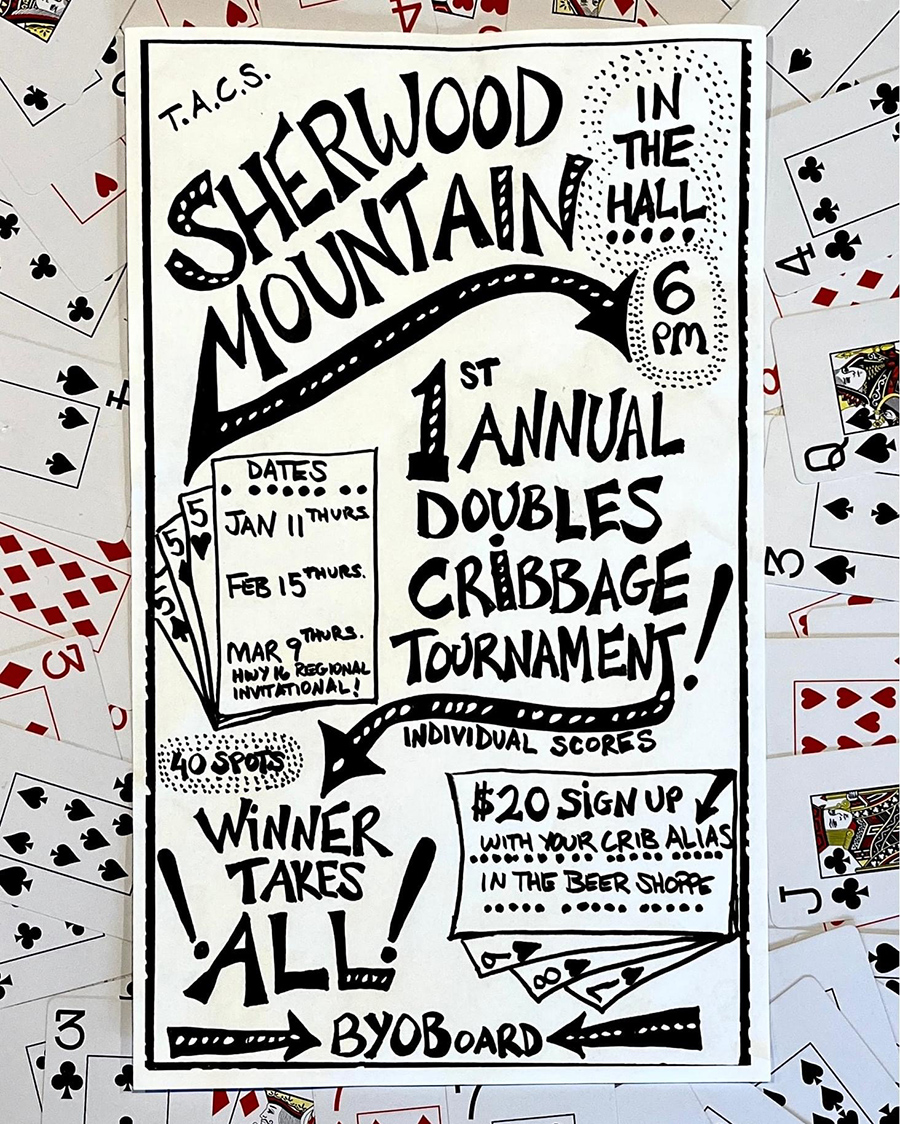 T.A.C.S.
SHERWOOD
MOUNTAIN
IN
THE
HALL
6
PM
1ST ANNUAL
DOUBLES
CRIBBAGE
TOURNAMENT!
INDIVIDUAL SCORES
DATES
JAN 11 THURS.
FEB 15 THURS.
MAR 9 THURS.
HWY 16 REGIONAL
INVITATIONAL!
5
5
5
40 SPOTS
WINNER
TAKES
!ALL!
$20 SIGN UP
WITH YOUR CRIB ALIAS
IN THE BEER SHOPPE
9
8
7
BYOBOARD
4
4
Q
3
3
J
3
7